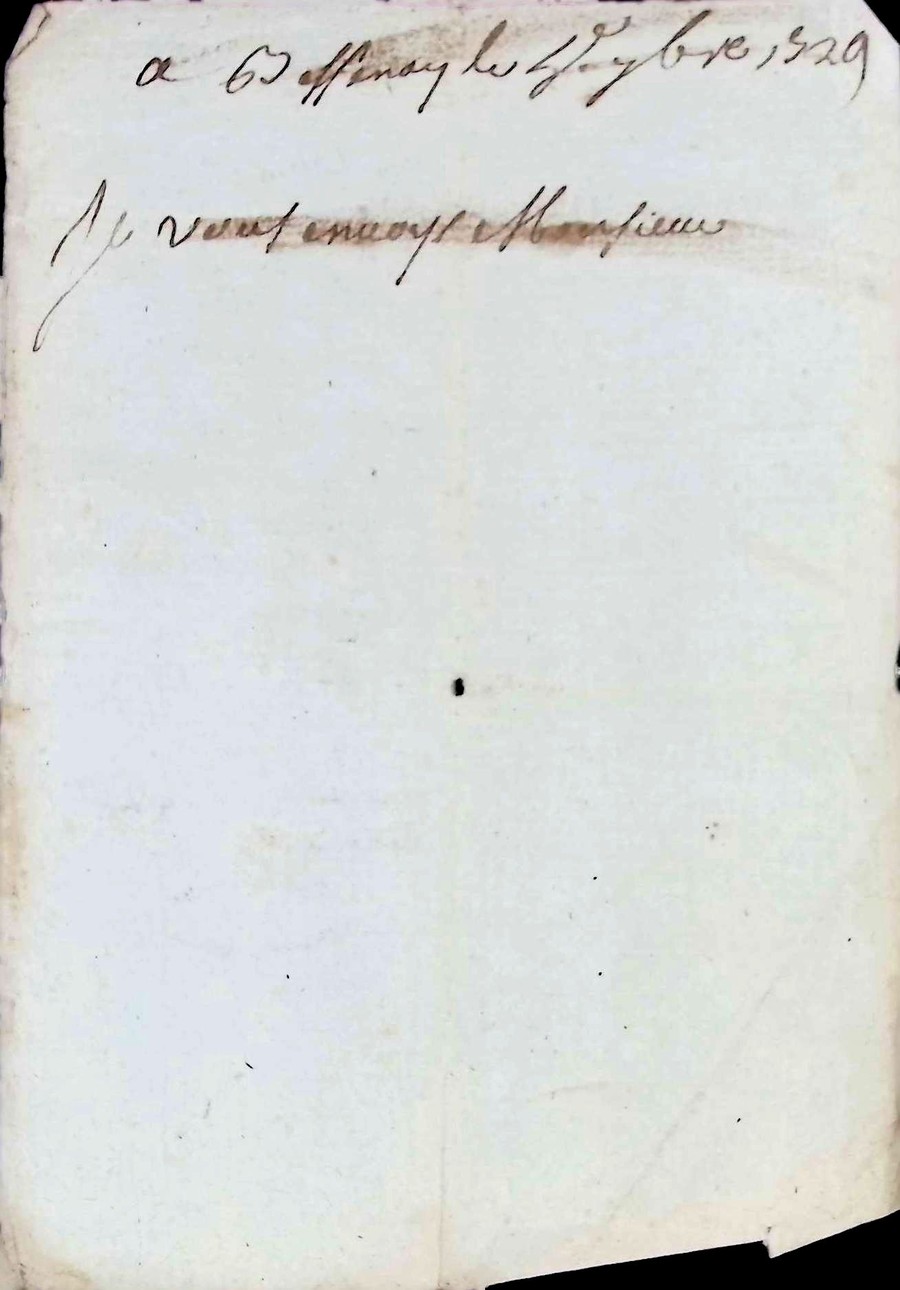 a Bessenay le 9bre 1729
Je vous envoye Monsieur